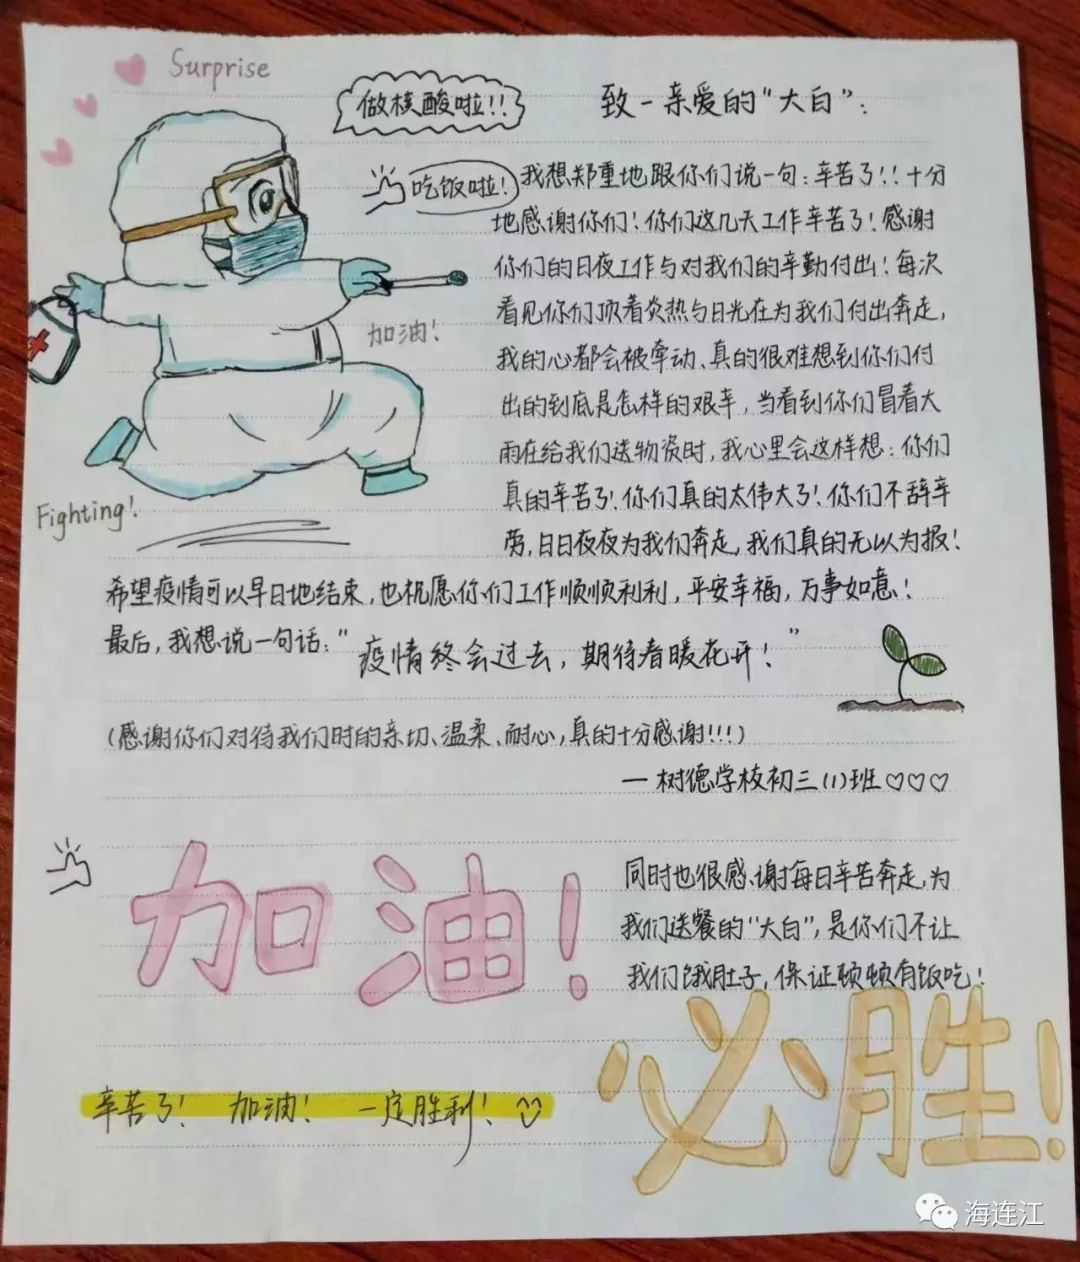 Surprise
做核酸啦!!
致-亲爱的“大白”:
吃饭啦!
我想郑重地跟你们说一句:辛苦了!!十分
地感谢你们!你们这几天工作辛苦了!感谢
你们的日夜工作与对我们的辛勤付出!每次
看见你们顶着炎热与日光在为我们付出奔走,
我的心都会被牵动、真的很难想到你们付
出的到底是怎样的艰辛,当看到你们冒着大
雨在给我们送物资时,我心里会这样想:你们
真的辛苦了!你们真的太伟大了!你们不辞辛
劳,日日夜夜为我们奔走,我们真的无以为报!
加油!
Fighting!
希望疫情可以早日地结束,也祝愿你们工作顺顺利利,平安幸福,万事如意!
最后,我想说一句话:“疫情终会过去,期待春暖花开!”
(感谢你们对待我们时的亲切、温柔、耐心,真的十分感谢!!!)
—树德学校初三(1)班♡♡♡
加油!
同时也很感谢每日辛苦奔走,为
我们送餐的“大白”,是你们不让
我们饿肚子,保证顿顿有饭吃!
必胜!
辛苦了! 加油! 一定胜利!
海连江